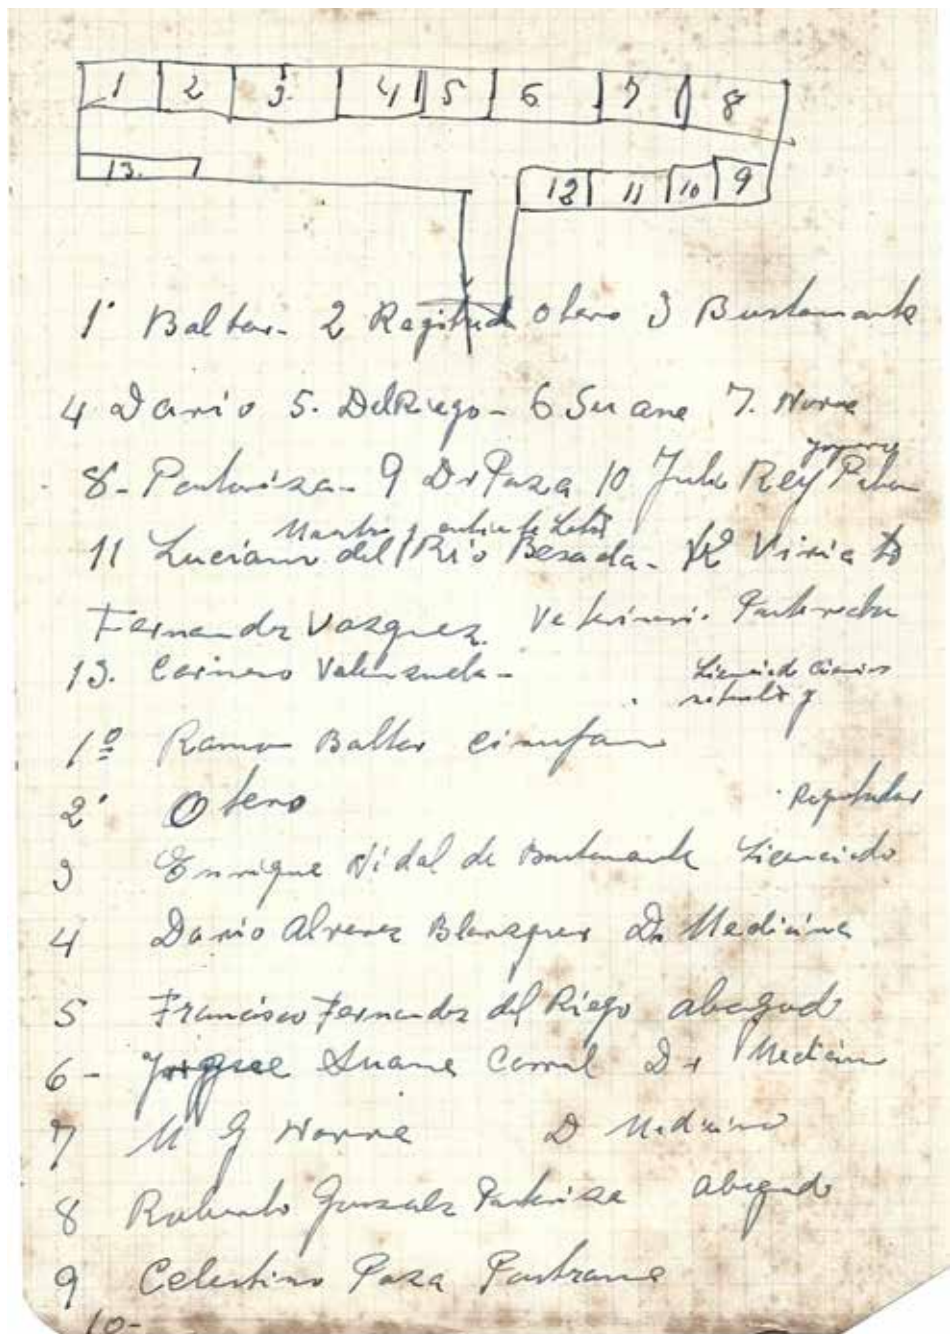 1 2 3 4 5 6 7 8
13. 12 11 10 9
1 Baltar- 2 Otero 3 Bustamante
4 Dario 5. Del Riego- 6 Suane 7. Novoa
8- Pontariza- 9 Dr Paza 10 Julio Rey
Maestro y
11 Luciano del Rio Besada-
Fernandez Vazquez. Veterinario. Pontevedra
13. Carnero Valenzuela- Licenciado Ciencias
1º Ramon Baltar cirujano
2º Otero
3 Enrique Vidal de Bustamante Licenciado
4 Dario Alvarez Blazquez Dr Medicina
5 Francisco Fernandez del Riego abogado
6- Suane Corral Dr Medicina
7 M G Novoa D Medicina
8 Roberto Gonzalz abogado
9 Celestino Paza Pastrana
10-